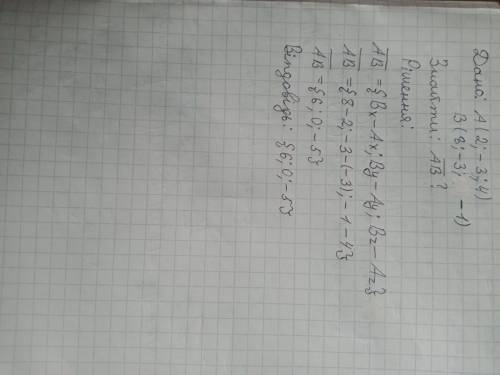 Дано: A(2; -3; 4)
B(8; -3; -1)
Знайти: AB?
Рішення:
AB = {Bx-Ax; By-Ay; Bz-Az}
AB = {8-2; -3-(-3); -1-4}
AB = {6; 0; -5}
Відповідь: {6; 0; -5}